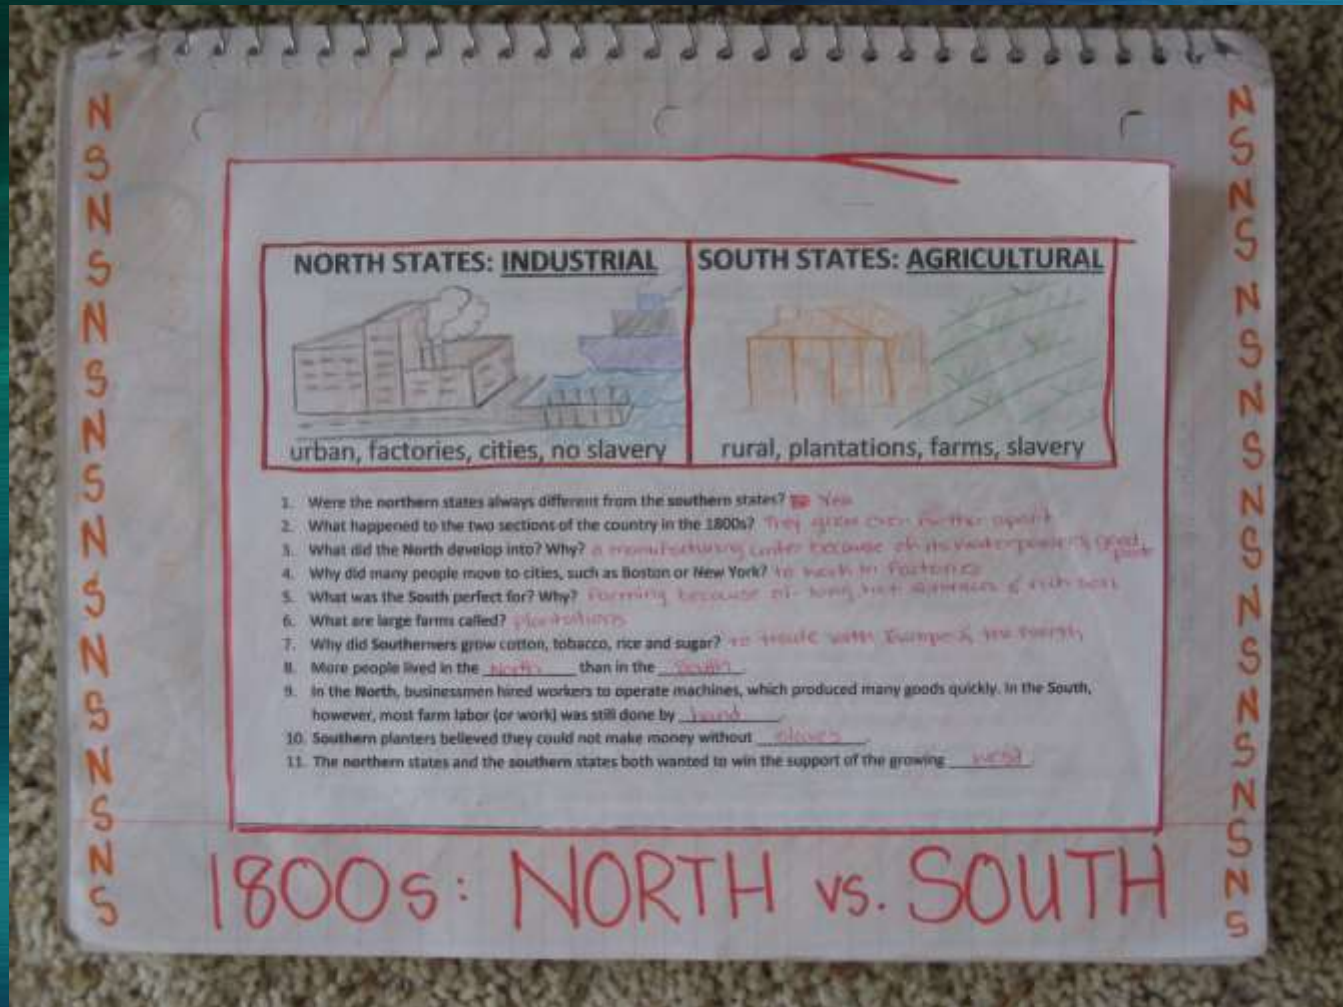 NORTH STATES: INDUSTRIAL
SOUTH STATES: AGRICULTURAL
urban, factories, cities, no slavery
rural, plantations, farms, slavery
1. Were the northern states always different from the southern states? Yes
2. What happened to the two sections of the country in the 1800s? They grew even further apart
3. What did the North develop into? Why? a manufacturing center because of its waterpower & good ports
4. Why did many people move to cities, such as Boston or New York? to work in factories
5. What was the South perfect for? Why? Farming because of long hot summers & rich soil
6. What are large farms called? plantations
7. Why did Southerners grow cotton, tobacco, rice and sugar? to trade with Europe & the North
8. More people lived in the North than in the South.
9. In the North, businessmen hired workers to operate machines, which produced many goods quickly. In the South,
however, most farm labor (or work) was still done by hand.
10. Southern planters believed they could not make money without slaves.
11. The northern states and the southern states both wanted to win the support of the growing west.
1800s: NORTH vs. SOUTH
N
S
N
S
N
S
N
S
N
S
N
S
N
S
N
S
N
S
N
S
N
S
N
S
N
S
N
S
N
S
N
S